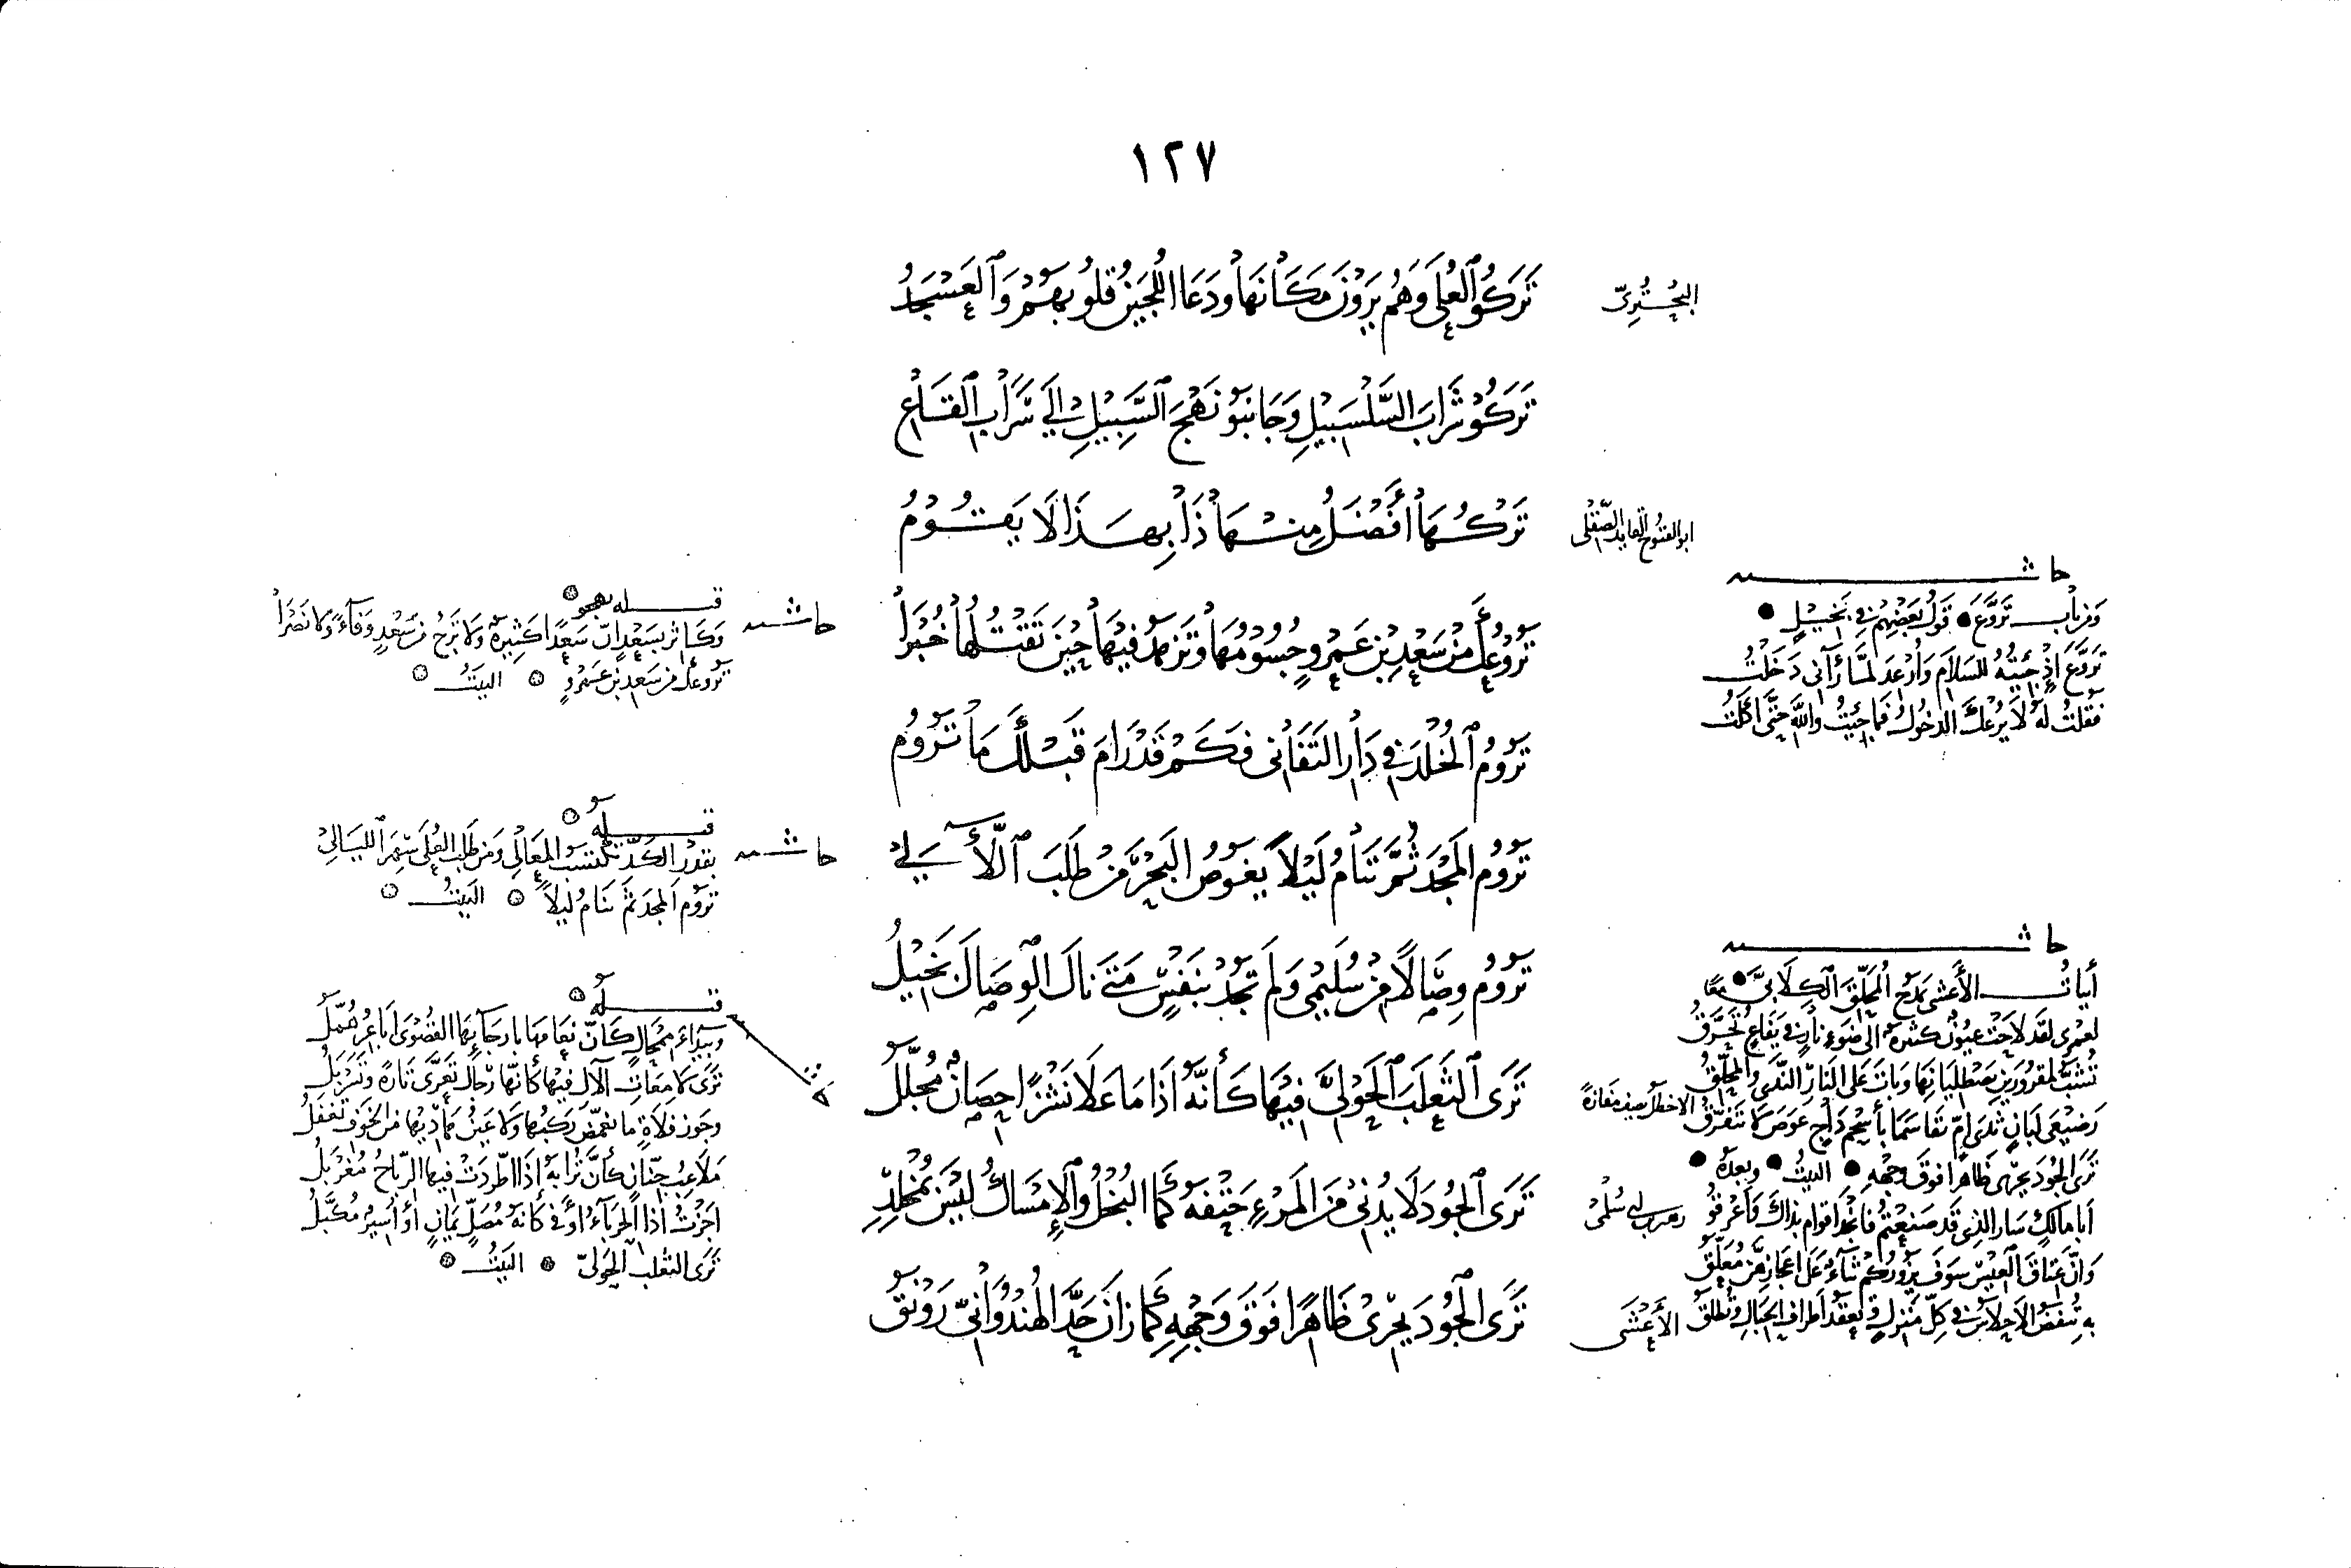 ١٢٧
البُحْتُرِيّ
تَرَكُوا العُلَى وَهُمُ يَرَوْنَ مَكَانَهَا وَدَعَا اللُّجَيْنُ قُلُوبَهُمْ وَالعَسْجَدُ
تَرَكُوا شَرَابَ السَّلْسَبِيْلِ وَجَانَبُوا نَهْجَ السَّبِيْلِ إِلَى سَرَابِ القَاعِ
ابو الفتوح القايد الصقلى
تَرْكُهَا أَفْضَلُ مِنْهَا ذَا بِهَذَا لَا يَقُوْمُ
تَرُوعُكَ مِنْ سَعْدِ بْنِ عَمْرٍو جُسُوْمُهَا وَتَزْهَدُ فِيْهَا حِيْنَ تَقْتُلُهَا خُبْرَا
تَرُوْمُ الخُلْدَ فِي دَارِ التَّفَانِى فَكَمْ قَدْ رَامَ قَبْلَكَ مَا تَرُوْمُ
تَرُوْمُ المَجْدَ ثُمَّ تَنَامُ لَيْلاً يَغُوصُ البَحْرَ مَنْ طَلَبَ اللَّآلِي
تَرُوْمُ وِصَالًا مِنْ سُلَيْمَى وَلَمْ تَجُدْ بِنَفْسٍ مَتَى نَالَ الوِصَالَ بَخِيْلُ
الاخطل يصف مفازة
تَرَى الثَّعْلَبَ الحَوْلِيَّ فِيْهَا كَأَنَّهُ اذَا مَا عَلَا نَشْزًا حِصَانٌ مُجَلَّلُ
زهير بن ابى سُلْمى
تَرَى الجُوْدَ لَا يُدْنِي مِنَ المَرْءِ حَتْفَهُ كَمَا البُخْلُ وَالإِمْسَاكُ لَيْسَ بِمُخْلِدِ
الأَعْشَى
تَرَى الجُوْدَ يَجْرِي ظَاهِرًا فَوْقَ وَجْهِهِ كَمَا زَانَ حَدَّ الهُنْدُوَانِيِّ رَوْنَقُ
حاشية
وَمِنْ بابِ تَرَوَّعَ قَوْلُ بَعْضِهِمْ فِي بَخِيْلٍ
تَرَوَّعَ إِذْ جِئْتُهُ لِلسَّلَامِ وَأُرْعِدَ لَمَّا رَآنِى دَخَلْتُ
فقُلتُ لَهُ لَا يَرُعْكَ الدُخُولُ فَمَا جِئْتُ وَاللَّهِ حَتَّى اكَلْتُ
حاشية
أبياتُ الأعشى يمدح المُحَلّقَ الكِلابيَّ
لعمري لقد لاحت عيونٌ كثيرة الى ضوء نار في يفاع تُحَرَّقُ
تُشبُّ لمقرورين يصطليانها وبات على النار النّدى والمحلّقُ
رَضيعَى لبانٍ ثَدىَ امٍّ تقاسما بأسحم داجٍ عوض لا نتفرّقُ
تَرَى الجُودَ يجري ظاهرا فوق وجهه البيتُ وبعدهُ
أبا مالكٍ سار الذي قد صنعتمُ فانجد اقوامٌ بذاك وأعرقُوا
وَانّ عتاق العيس سوف يزوركم ثناءٌ على اعجازهنّ مُعلّقُ
بهِ تُنفض الاحلاس في كل منزلٍ وتُعقد اطراف الحبال وتُطلقُ
حاشية
قبله يهجو
وَكَاثِرْ بسَعْدٍ انّ سَعْدًا كَثِيرَةٌ وَلا تَرْجُ مِنْ سَعْدٍ وَفَاءً وَلا نَصْرَا
تَروعُكَ مِن سعد بن عمرو البَيتُ
حاشية
قبله
بقدْرِ الكَدِّ تُكتَسَبُ المَعَالِي وَمَن طَلَبَ العُلَى سَهِرَ اللَيَالِي
تَرُوْمُ المَجدَ ثُمَّ تَنَامُ لَيْلاً البَيتُ
قبله
وبيداءَ مِمْحالٍ كأنّ نعامها بارجائها القُصْوَى اباعرُ هُمَّلُ
تَرى لامعاتِ الآل فيها كأنّها رِجالٌ تَعَرَّى تارةً وتَسَرْبَلُ
وجَوز فلاةٍ ما يُغمّضُ رَكبُها ولا عَيْنُ هاديها من الخوف تَغفُلُ
مَلاعِبُ جِنّانٍ كأنّ تُرابهُ اذا اطّردَت فيها الرّياحُ مُغَرْبَلُ
اجَزْتُ اذا الحرباءُ اوفى كانه مُصَلٍّ يَمَانٍ أو أسيرٌ مُكَبَّلُ
تَرَى الثعلب الحَوْليّ البَيتُ